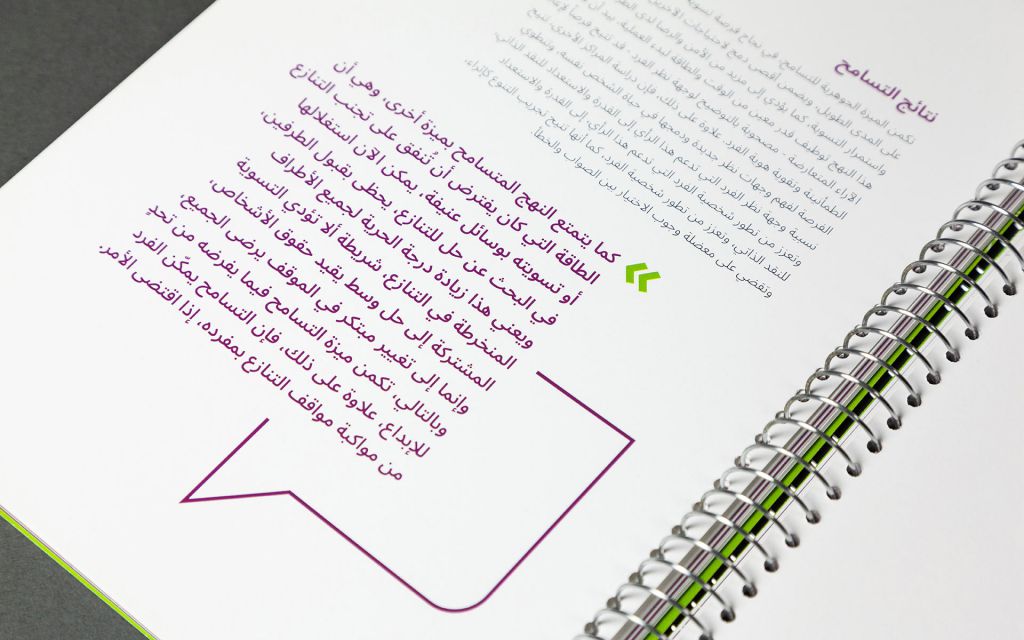 نتائج التسامح
تكمن الميزة الجوهرية للتسامح في نجاح فرصة تسوية
على المدى الطويل، ويضمن أقصى دمج لاحتياجات الآخرين
واستمرار التسوية، كما يؤدي إلى مزيد من الأمن والرضا لدى
هذا النهج توظيف قدر معين من الوقت والطاقة لبدء العملية، بيد أن
الآراء المتعارضة - مصحوبة بالتوضيح لوجهة نظر الفرد - قد تتيح فرصاً
الطمأنينة وتقوية هوية الفرد. علاوة على ذلك، فإن دراسة المراكز الأخرى، تتيح
الفرصة لفهم وجهات نظر جديدة ودمجها في حياة الشخص نفسه، وتنطوي
نسبية وجهة نظر الفرد التي تدعم هذا الرأي إلى القدرة والاستعداد للنقد الذاتي،
وتعزز من تطور شخصية الفرد التي تدعم هذا الرأي، إلى القدرة والاستعداد
للنقد الذاتي، وتعزز من تطور شخصية الفرد، كما أنها تتيح تجريب التنوع كإثراء،
وتقضي على معضلة وجوب الاختيار بين الصواب والخطأ.
كما يتمتع النهج المتسامح بميزة أخرى، وهي أن
الطاقة التي كان يفترض أن تُنفق على تجنب التنازع
أو تسويته بوسائل عنيفة، يمكن الآن استغلالها
في البحث عن حل للتنازع، يحظى بقبول الطرفين،
ويعني هذا زيادة درجة الحرية لجميع الأطراف
المنخرطة في التنازع، شريطة ألا تؤدي التسوية
المشتركة إلى حل وسط يقيد حقوق الأشخاص،
وإنما إلى تغيير مبتكر في الموقف يرضى الجميع.
وبالتالي، تكمن ميزة التسامح فيما يفرضه من تحدٍ
للإبداع، علاوة على ذلك، فإن التسامح يمكّن الفرد
من مواكبة مواقف التنازع بمفرده، إذا اقتضى الأمر.